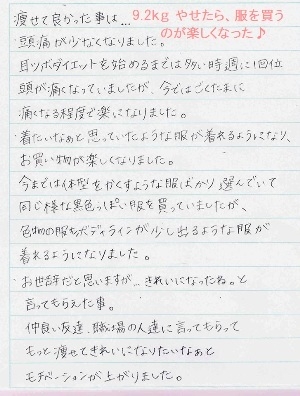 痩せて良かった事は…
9.2kg やせたら、服を買う
のが楽しくなった♪
頭痛が少なくなりました。
耳ツボダイエットを始めるまでは多い時週に1回位
頭が痛くなっていましたが、今ではごくたまに
痛くなる程度で楽になりました。
・着たいなぁと思っていたような服が着れるようになり、
お買い物が楽しくなりました。
今までは体型をかくすような服ばかり選んでいて
同じ様な黒色っぽい服を買っていましたが、
色物の服もボディラインが少し出るような服が
着れるようになりました。
・お世辞だと思いますが…きれいになったね。と
言ってもらえた事。
仲良い友達、職場の人達に言ってもらって
もっと痩せてきれいになりたいなぁと
モチベーションが上がりました。